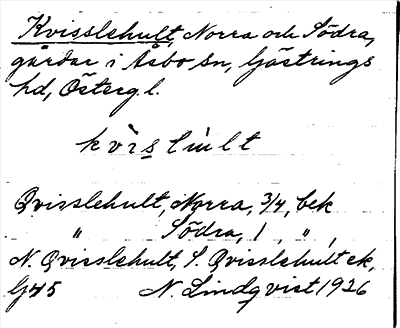 Kvisslehult, Norra och Södra,
gårdar i Åsbo sn, Göstrings
hd, Östergl.
kvìslúlt
Qvisslehult, Norra, 3/4, bek
" Södra, 1, ",
N. Qvisslehult, S. Qvisslehult ek,
G45 N. Lindqvist 1926